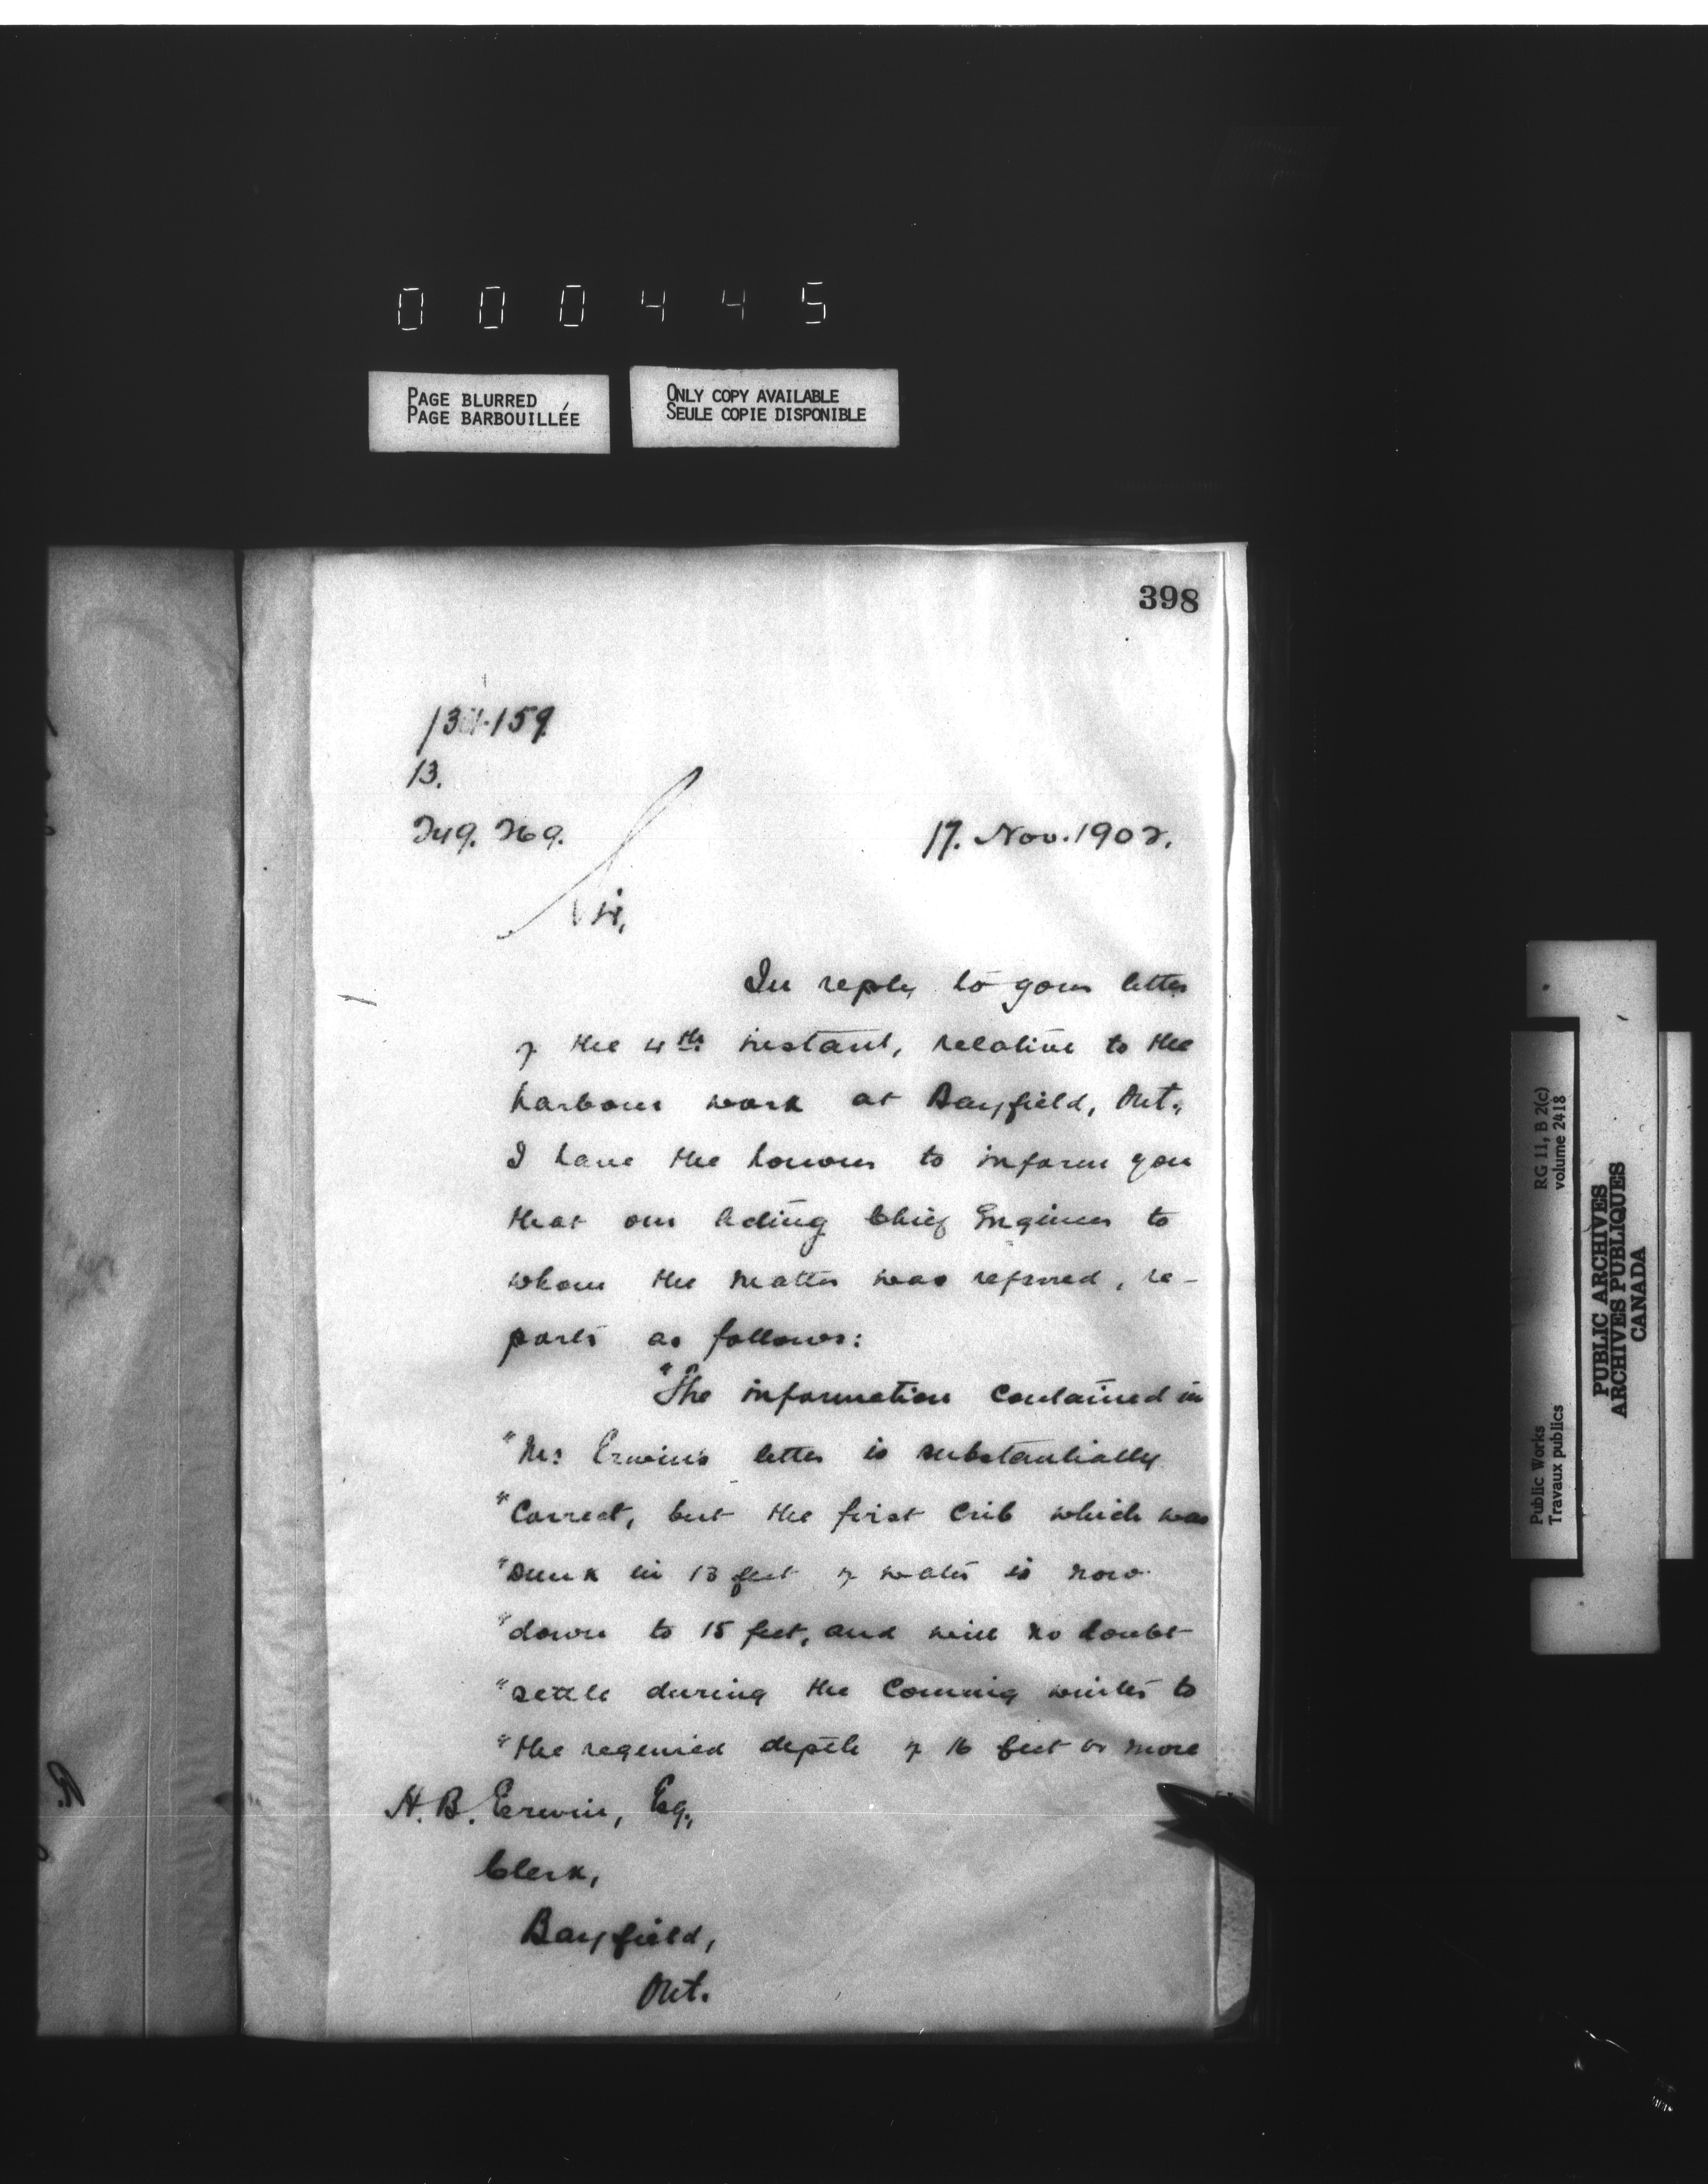 000445
PAGE BLURRED
PAGE BARBOUILLÉE
ONLY COPY AVAILABLE
SEULE COPIE DISPONIBLE
398
13.
249.269.
17. Nov. 1902.
Sir,
In reply to your letter
of the 4th instant, relative to the
harbour work at Bayfield, Ont.,
I have the honour to inform you
that our Acting Chief Engineer to
whom the matter was referred, re-
ports as follows:
"The information contained in
"Mr Erwin's letter is substantially
"Correct, but the first Crib which was
"sunk in 13 feet of water is now
"down to 15 feet, and will no doubt
"settle during the Coming winter to
"the required depth of 16 feet or more
H. B. Erwin, Esq.,
Clerk,
Bayfield,
Ont.
RG 11, B 2(c)
volume 2418
Public Works
Travaux publics
PUBLIC ARCHIVES
ARCHIVES PUBLIQUES
CANADA